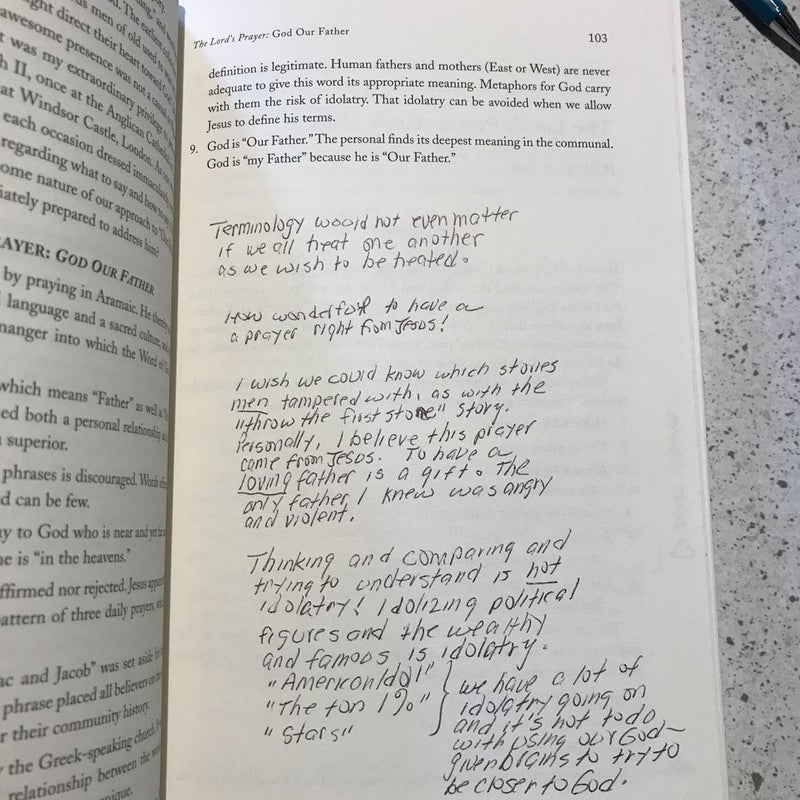 ous men of old used to
ght direct their heart toward
awesome presence was not a casual
t was my extraordinary privilege
h II, once at the Anglican Cathedral
at Windsor Castle, London.
each occasion dressed immaculately
regarding what to say and how to
ome nature of our approach to
iately prepared to address him?
AYER: GOD OUR FATHER
by praying in Aramaic. He
language and a sacred culture,
manger into which the Word of
which means "Father" as well as
ed both a personal relationship
superior.
phrases is discouraged. Words
d can be few.
ay to God who is near and yet
he is "in the heavens."
ffirmed nor rejected. Jesus
attern of three daily prayers,
ac and Jacob" was set aside
phrase placed all believers on
r their community history.
y the Greek-speaking church.
relationship between the
unique.
The Lord's Prayer: God Our Father
103
definition is legitimate. Human fathers and mothers (East or West) are never
adequate to give this word its appropriate meaning. Metaphors for God carry
with them the risk of idolatry. That idolatry can be avoided when we allow
Jesus to define his terms.
9. God is "Our Father." The personal finds its deepest meaning in the communal.
God is "my Father" because he is "Our Father."
Terminology would not even matter
if we all treat one another
as we wish to be treated.
How wonderful to have a
a prayer right from Jesus!
I wish we could know which stories
men tampered with, as with the
"throw the first stone" story.
Personally, I believe this prayer
came from Jesus. To have a
loving father is a gift. The
only father I knew was angry
and violent.
Thinking and comparing and
trying to understand is not
idolatry! Idolizing political
figures and the wealthy
and famous is idolatry.
"American Idol"
"The top 1%"
"Stars"
we have a lot of
idolatry going on
and it's not to do
with using our God-
given brains to try to
be closer to God.